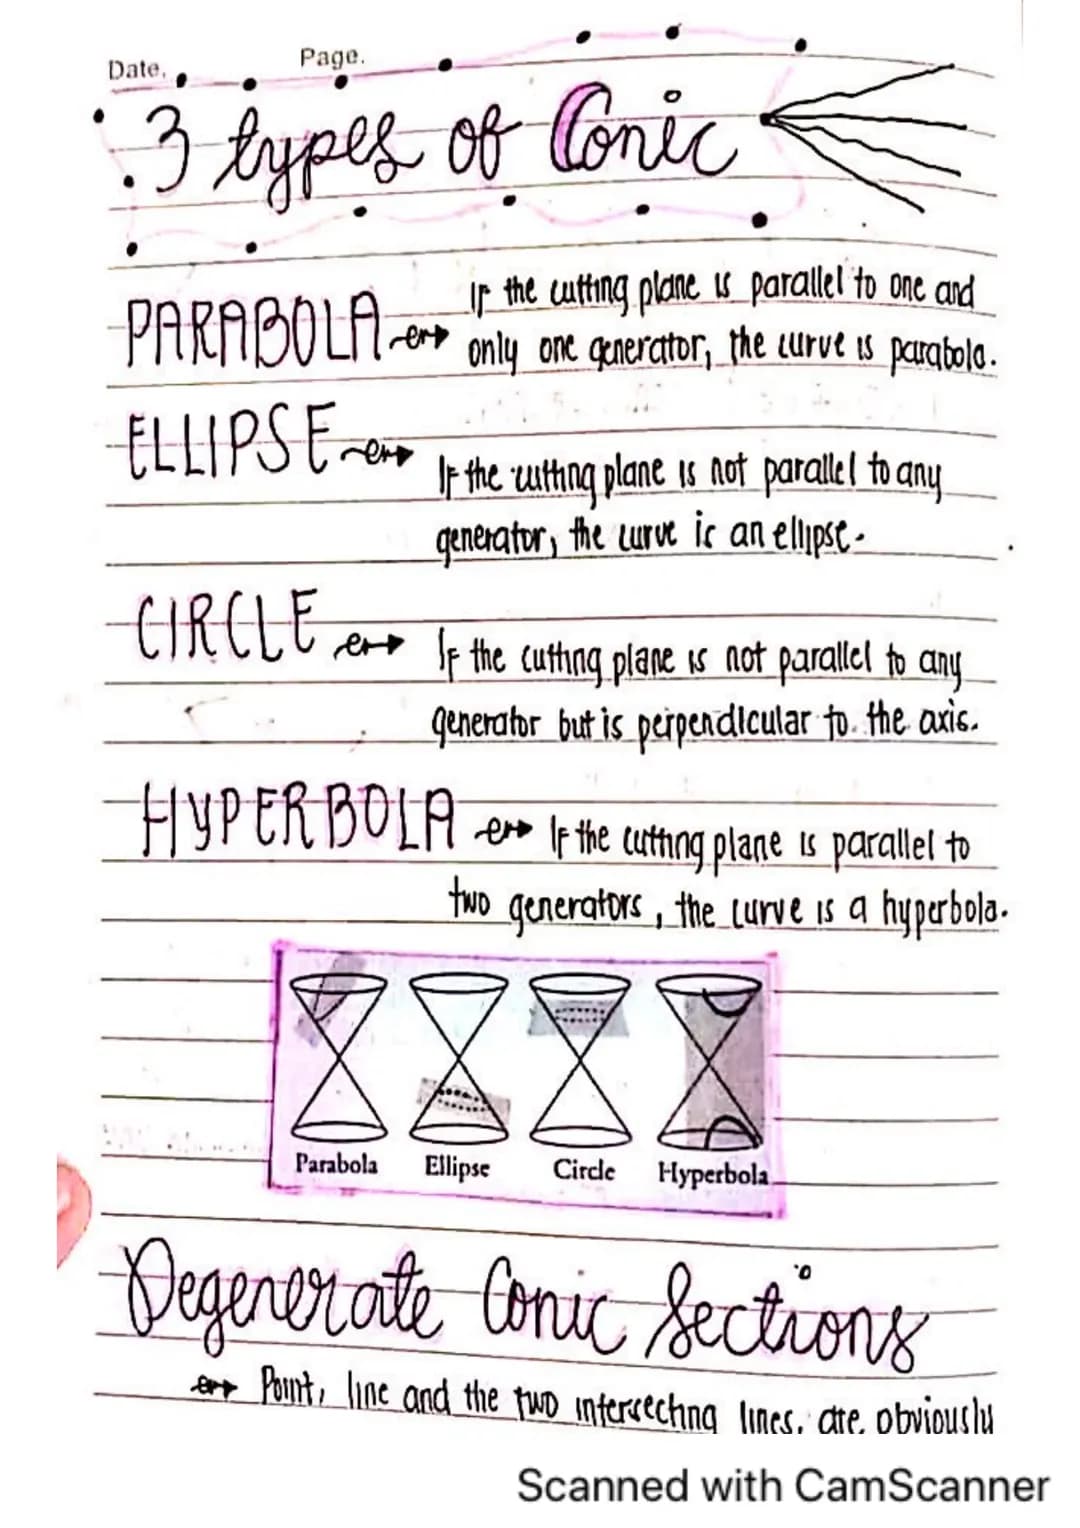 Date. Page.
3 types of Conic
PARABOLA
If the cutting plane is parallel to one and
only one generator, the curve is parabola.
ELLIPSE
If the cutting plane is not parallel to any
generator, the curve is an ellipse.
CIRCLE
If the cutting plane is not parallel to any
generator but is perpendicular to. the axis.
HYPERBOLA If the cutting plane is parallel to
two generators, the curve is a hyperbola.
Parabola Ellipse Circle Hyperbola
Degenerate Conic Sections
Point, line and the two intersecting lines, are obviously
Scanned with CamScanner